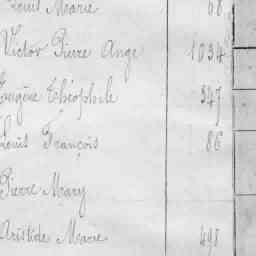 Louis Marie 68
Victor Pierre Ange 1034
Eugène Théophile 347
Louis François 86
Pierre Mary
Aristide Marie 498